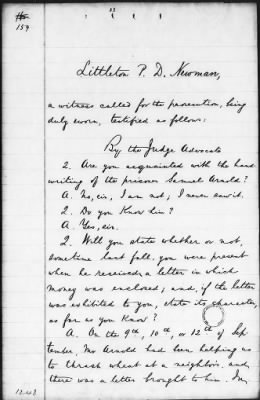 159
Littleton P. D. Newman,
a witness called for the prosecution, being
duly sworn, testified as follows:
By the Judge Advocate
Q. Are you acquainted with the hand
writing of the prisoner Samuel Arnold?
A. No, sir, I am not; I never saw it.
Q. Do you Know him?
A. Yes, sir.
Q. Will you state whether or not,
sometime last fall, you were present
when he received a letter in which
money was enclosed; and, if the letter
was exhibited to you, state its character,
as far as you Know?
A. On the 9th, 10th, or 12th of Sep
tember, Mr Arnold had been helping us
to thrash wheat at a neighbors, and
there was a letter brought to him. In